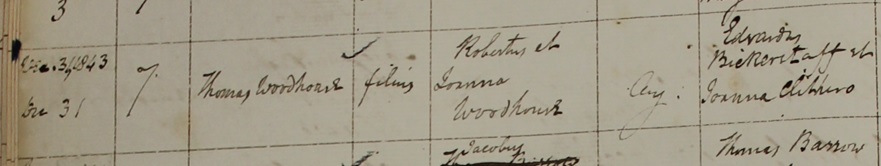 3 7
Dec. 31, 1843
Dec 31
7
Thomas Woodhouse
filius
Robertus et
Joanna
Woodhouse
Ang:
Edvardus
Bickerstaff et
Joanna Clitthero
Jacobus
Thomas Barrow